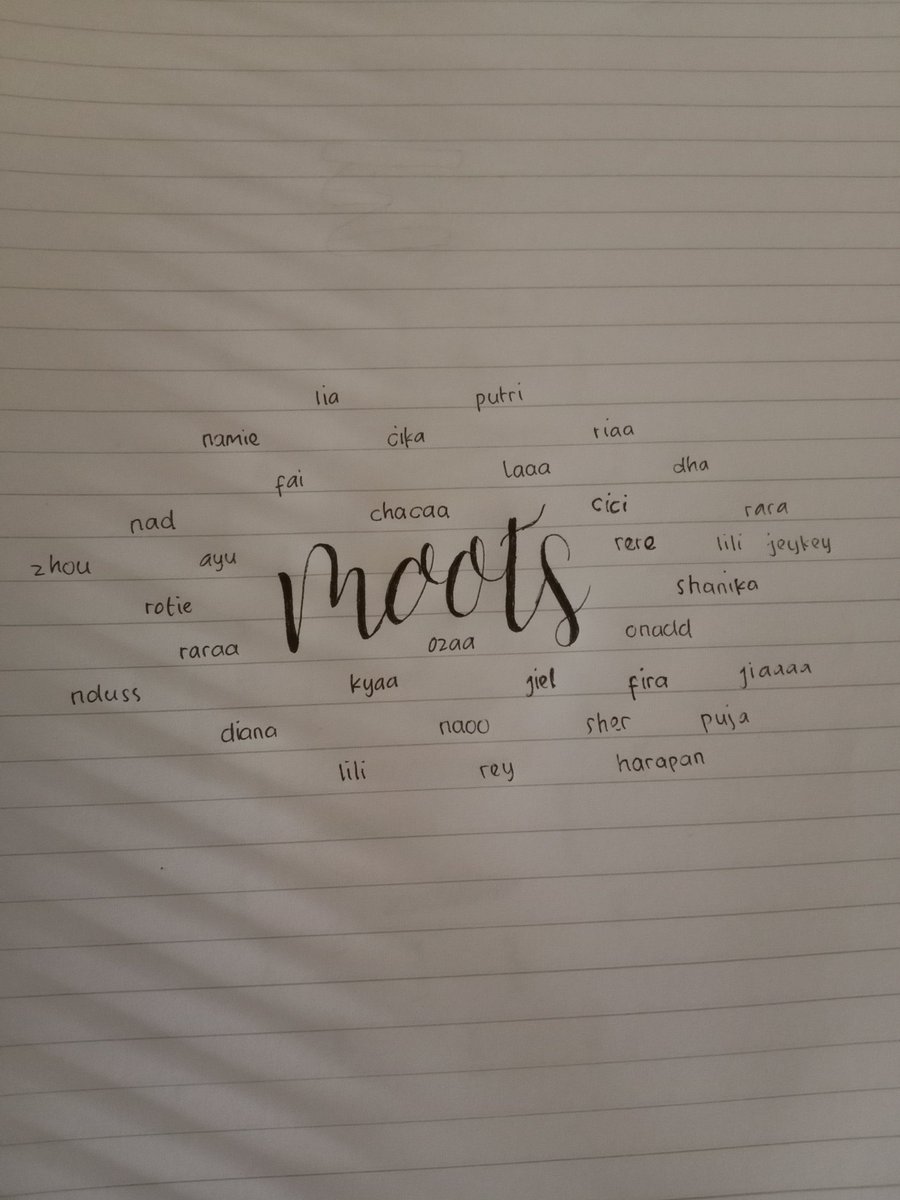 lia putri
namie cika riaa
fai laaa dha
nad chacaa cici rara
zhou ayu rere lili jeykey
moots
rotie shanika
raraa ozaa onadd
nduss kyaa jiel fira jiaaaa
diana naoo sher puja
lili rey harapan